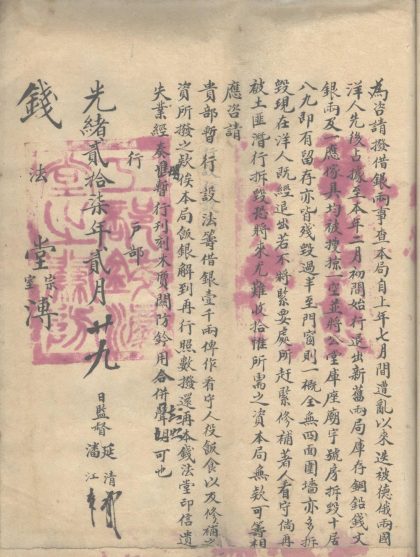 為咨請撥借銀兩事查本局自上年七月間遭亂以來迭被德俄兩國
洋人先後占據至本年二月初間始行退出新舊兩局庫存銅鉛錢文
銀兩及一應傢具均被搜掠一空並將公堂庫座廟宇號房拆毀十居
八九即有留存亦皆殘毀過半至門窗則一概全無四面圍墻亦多拆
毀現在洋人既經退出若不將緊要處所赶緊修補著人看守倘再
被土匪潛行拆毀恐將來尤難收拾惟所需之資本局無款可籌相
應咨請
貴部暫行設法籌借銀壹千兩俾作看守人役飯食以及修補之
資所撥之款俟本局飯銀解到再行照數撥還再本錢法堂印信遺
失業經奏准暫行刊刻木質關防鈐用合併聲明可也
行
戶部
光緒貳拾柒年貳月廿九
日監督
延清
潘江
錢法堂
宗室溥